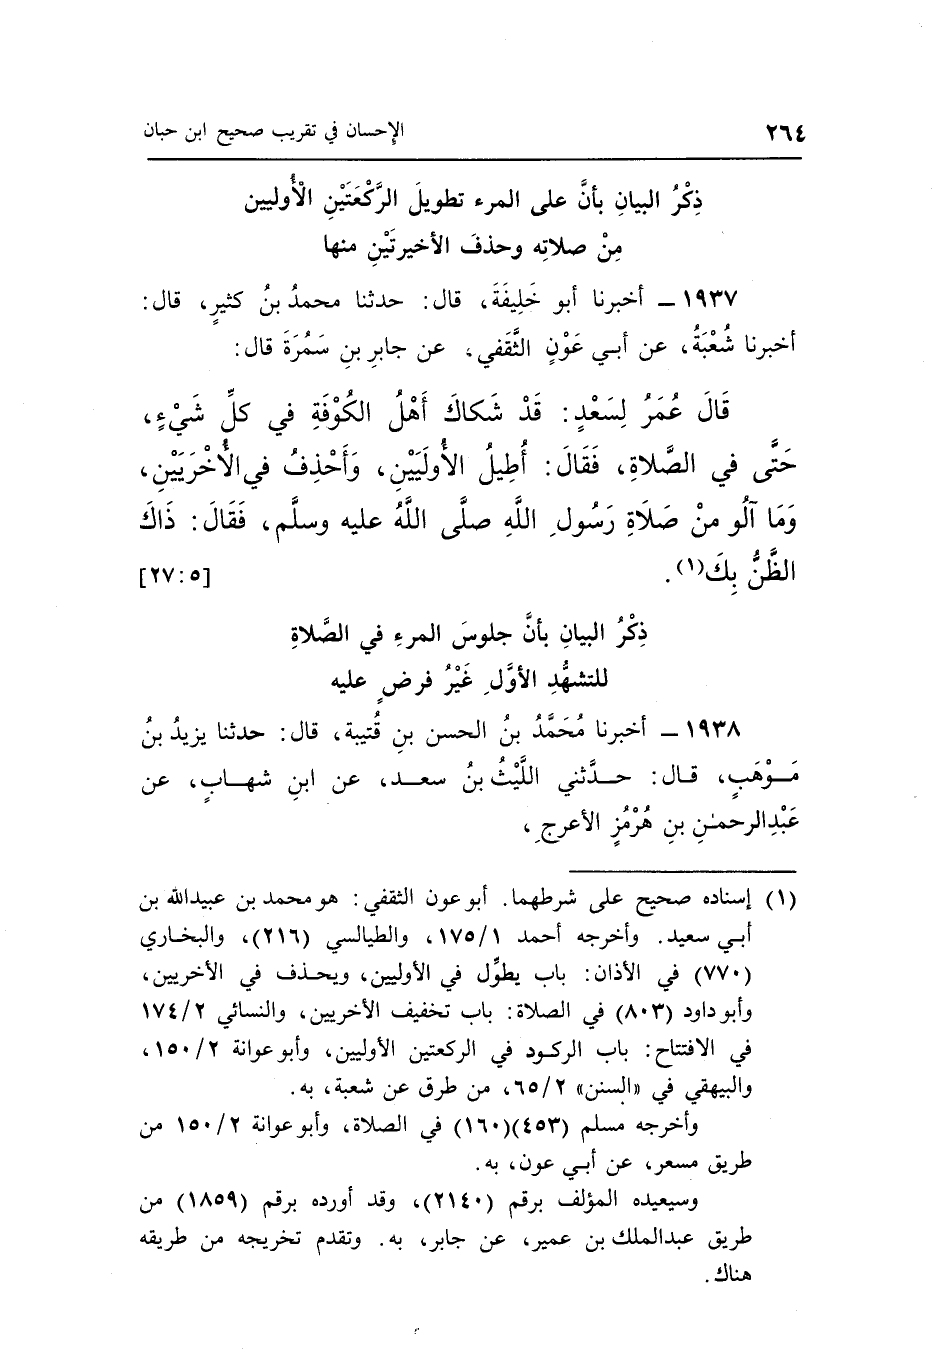 ٢٦٤ الإحسان في تقريب صحيح ابن حبان
ذِكْرُ البيانِ بأنَّ على المرء تطويلَ الرَّكْعَتَيْنِ الْأُوليين
مِنْ صلاتِه وحذفَ الأخيرتَيْنِ منها
١٩٣٧ – أخبرنا أبو خَلِيفَةَ، قال: حدثنا محمدُ بنُ كثيرٍ، قال:
أخبرنا شُعْبَةُ، عن أبي عَوْنٍ الثَّقَفي، عن جابرِ بنِ سَمُرَةَ قال:
قَالَ عُمَرُ لِسَعْدٍ: قَدْ شَكاكَ أَهْلُ الكُوْفَةِ في كلِّ شَيْءٍ،
حَتَّى في الصَّلاةِ، فَقَالَ: أُطِيلُ الأُولَيَيْنِ، وَأَحْذِفُ في الأُخْرَيَيْنِ،
وَمَا آلُو مِنْ صَلَاةِ رَسُولِ اللَّهِ صلَّى اللَّهُ عليه وسلَّم، فَقَالَ: ذَاكَ
الظَّنُّ بِكَ(١). [٢٧:٥]
ذِكْرُ البيانِ بأنَّ جلوسَ المرءِ في الصَّلاةِ
للتشهُّدِ الأوَّلِ غَيْرُ فرضٍ عليه
١٩٣٨ – أخبرنا مُحَمَّدُ بنُ الحسن بنِ قُتيبة، قال: حدثنا يزيدُ بنُ
مَوْهَبٍ، قال: حدَّثني اللَّيْثُ بنُ سعد، عن ابنِ شهابٍ، عن
عَبْدِالرحمـٰنِ بنِ هُرْمُزٍ الأعرجِ،
(١) إسناده صحيح على شرطهما. أبو عون الثقفي: هو محمد بن عبيدالله بن
أبي سعيد. وأخرجه أحمد ١٧٥/١، والطيالسي (٢١٦)، والبخاري
(٧٧٠) في الأذان: باب يطوِّل في الأوليين، ويحذف في الأخريين،
وأبو داود (٨٠٣) في الصلاة: باب تخفيف الأخريين، والنسائي ١٧٤/٢
في الافتتاح: باب الركود في الركعتين الأوليين، وأبو عوانة ١٥٠/٢،
والبيهقي في «السنن» ٦٥/٢، من طرق عن شعبة، به.
وأخرجه مسلم (٤٥٣)(١٦٠) في الصلاة، وأبو عوانة ١٥٠/٢ من
طريق مسعر، عن أبي عون، به.
وسيعيده المؤلف برقم (٢١٤٠)، وقد أورده برقم (١٨٥٩) من
طريق عبدالملك بن عمير، عن جابر، به. وتقدم تخريجه من طريقه
هناك.